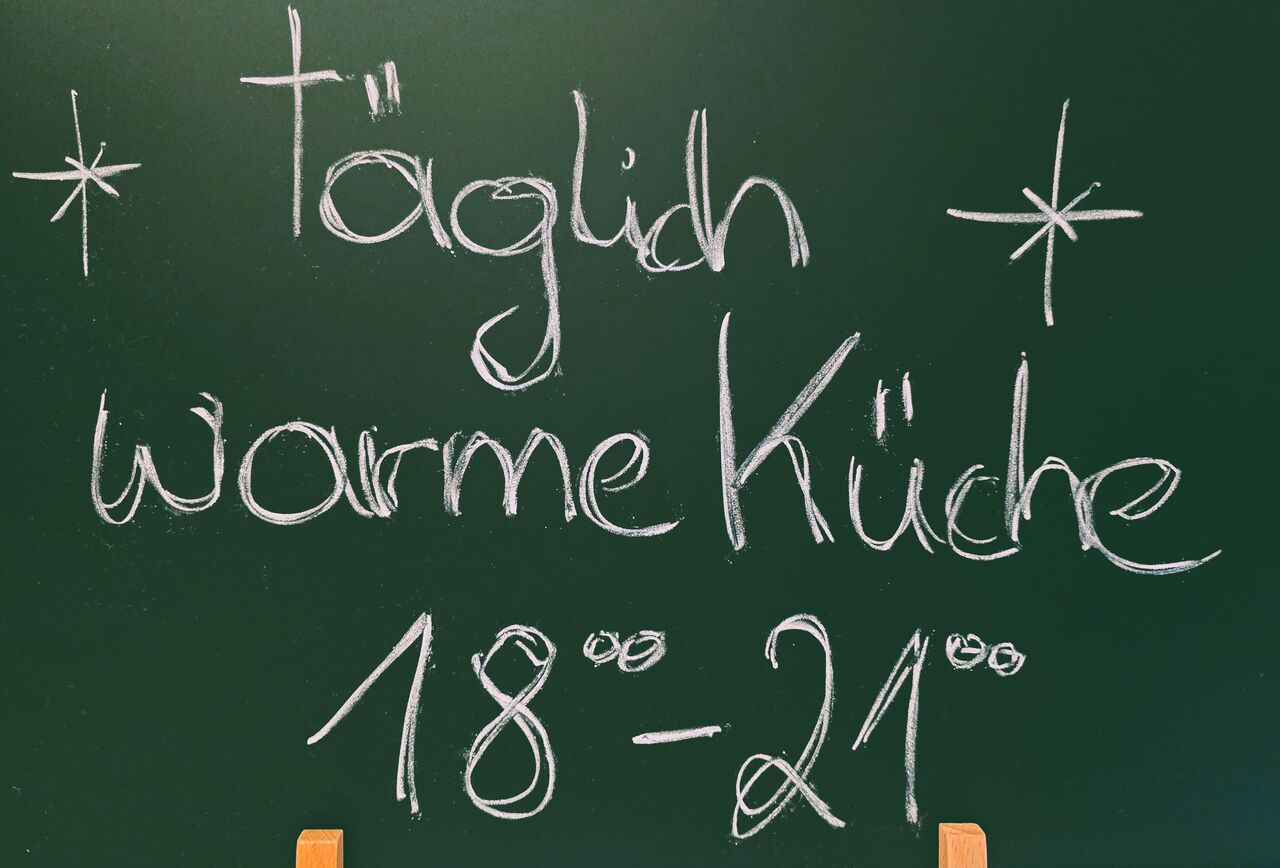 * Täglich *
warme Küche
18⁰⁰ - 21⁰⁰